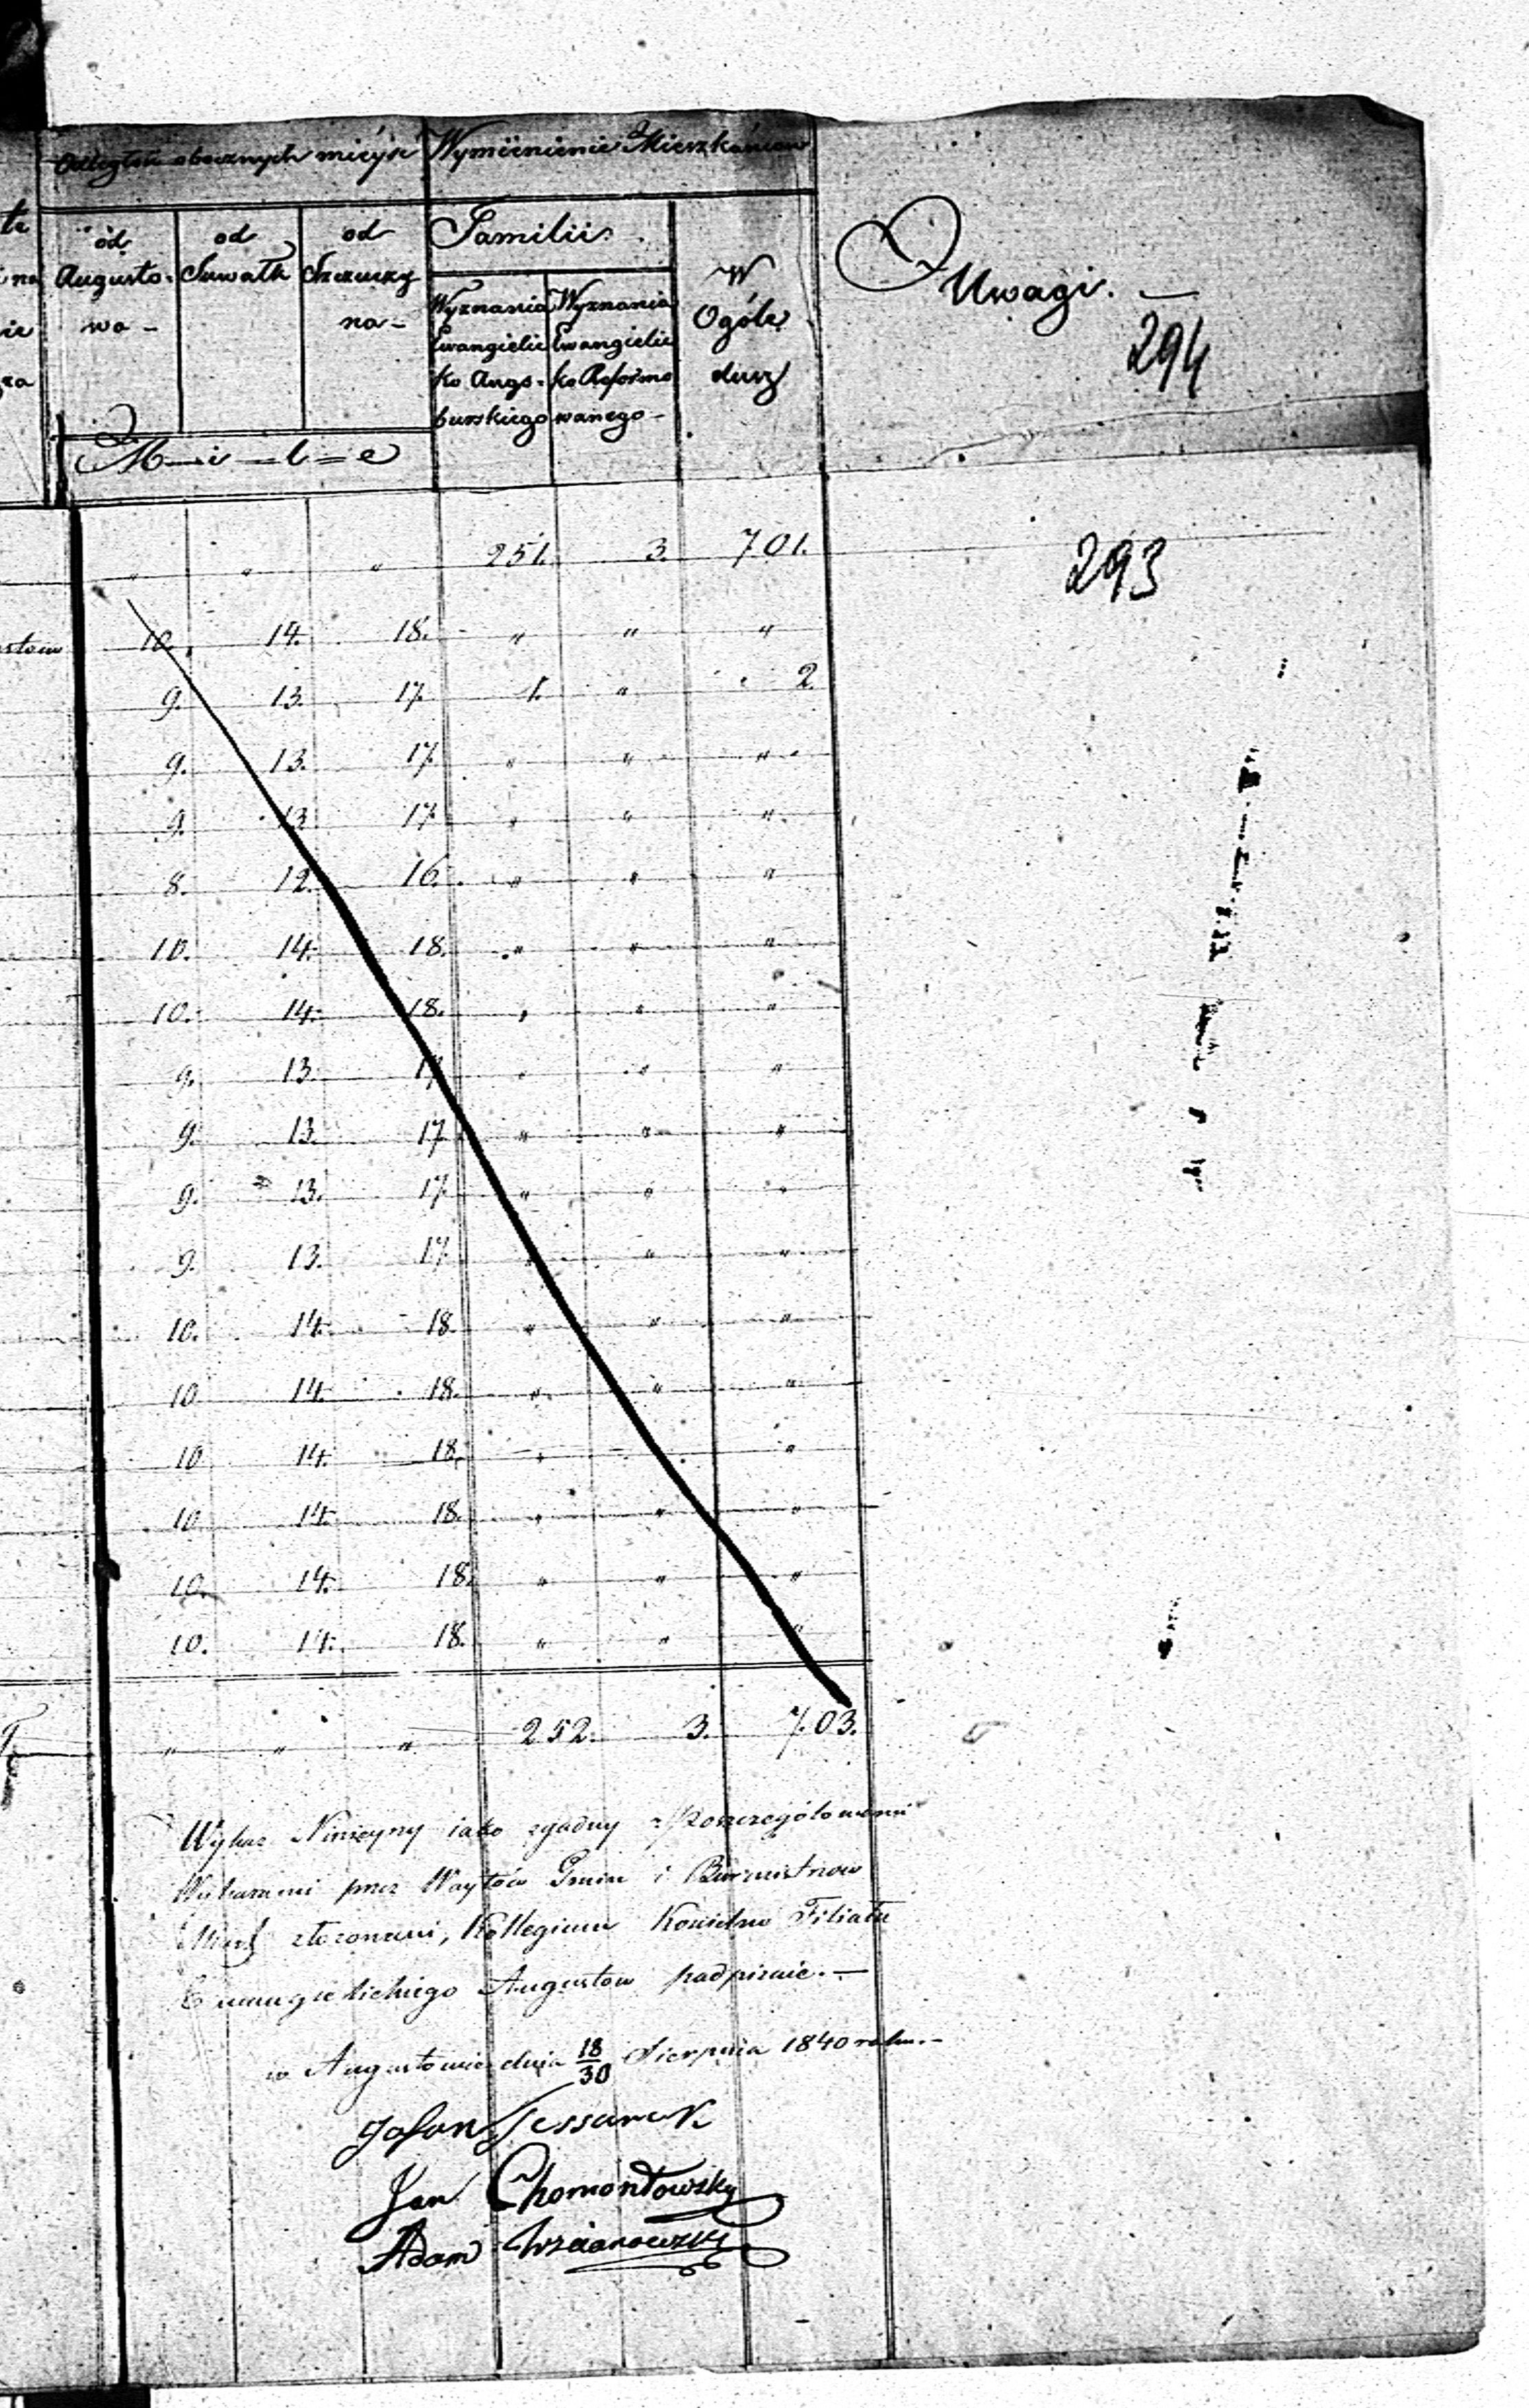 Odległość obecznych mieysc Wymienienie Mieszkańców
od Augusto=wa- od Suwałk od Szczuczyna-
Familii.
Wyznania Ewangielicko Augs=burskiego
Wyznania Ewangielicko Reformowanego-
W Ogóle dusz
Uwagi. —
294
M-i-l-e
" " " 251. 3. 701.
293
stow 10. 14. 18. " " "
9. 13. 17. 1. " 2.
9. 13. 17. " " "
9. 13. 17. " " "
8. 12. 16. " " "
10. 14. 18. " " "
10. 14. 18. " " "
9. 13. 17. " " "
9. 13. 17. " " "
9. 13. 17. " " "
9. 13. 17. " " "
10. 14. 18. " " "
10 14. 18. " " "
10 14. 18. " "
10 14. 18. " " "
10. 14. 18. " " "
10. 14. 18. " " "
" " " 252. 3. 703.
Wykaz Ninieyny iako zgodny z Poszczegółowemi
Wykazami przez Woytów Gmin i Burmistrzow
Miast złozonemi, Kollegium Koscielne Filiału
Ewangielickiego Augustow podpisuie.—
w Augustowie dnia 18/30 Sierpnia 1840 roku.—
Jan Chomontowsky
Adam